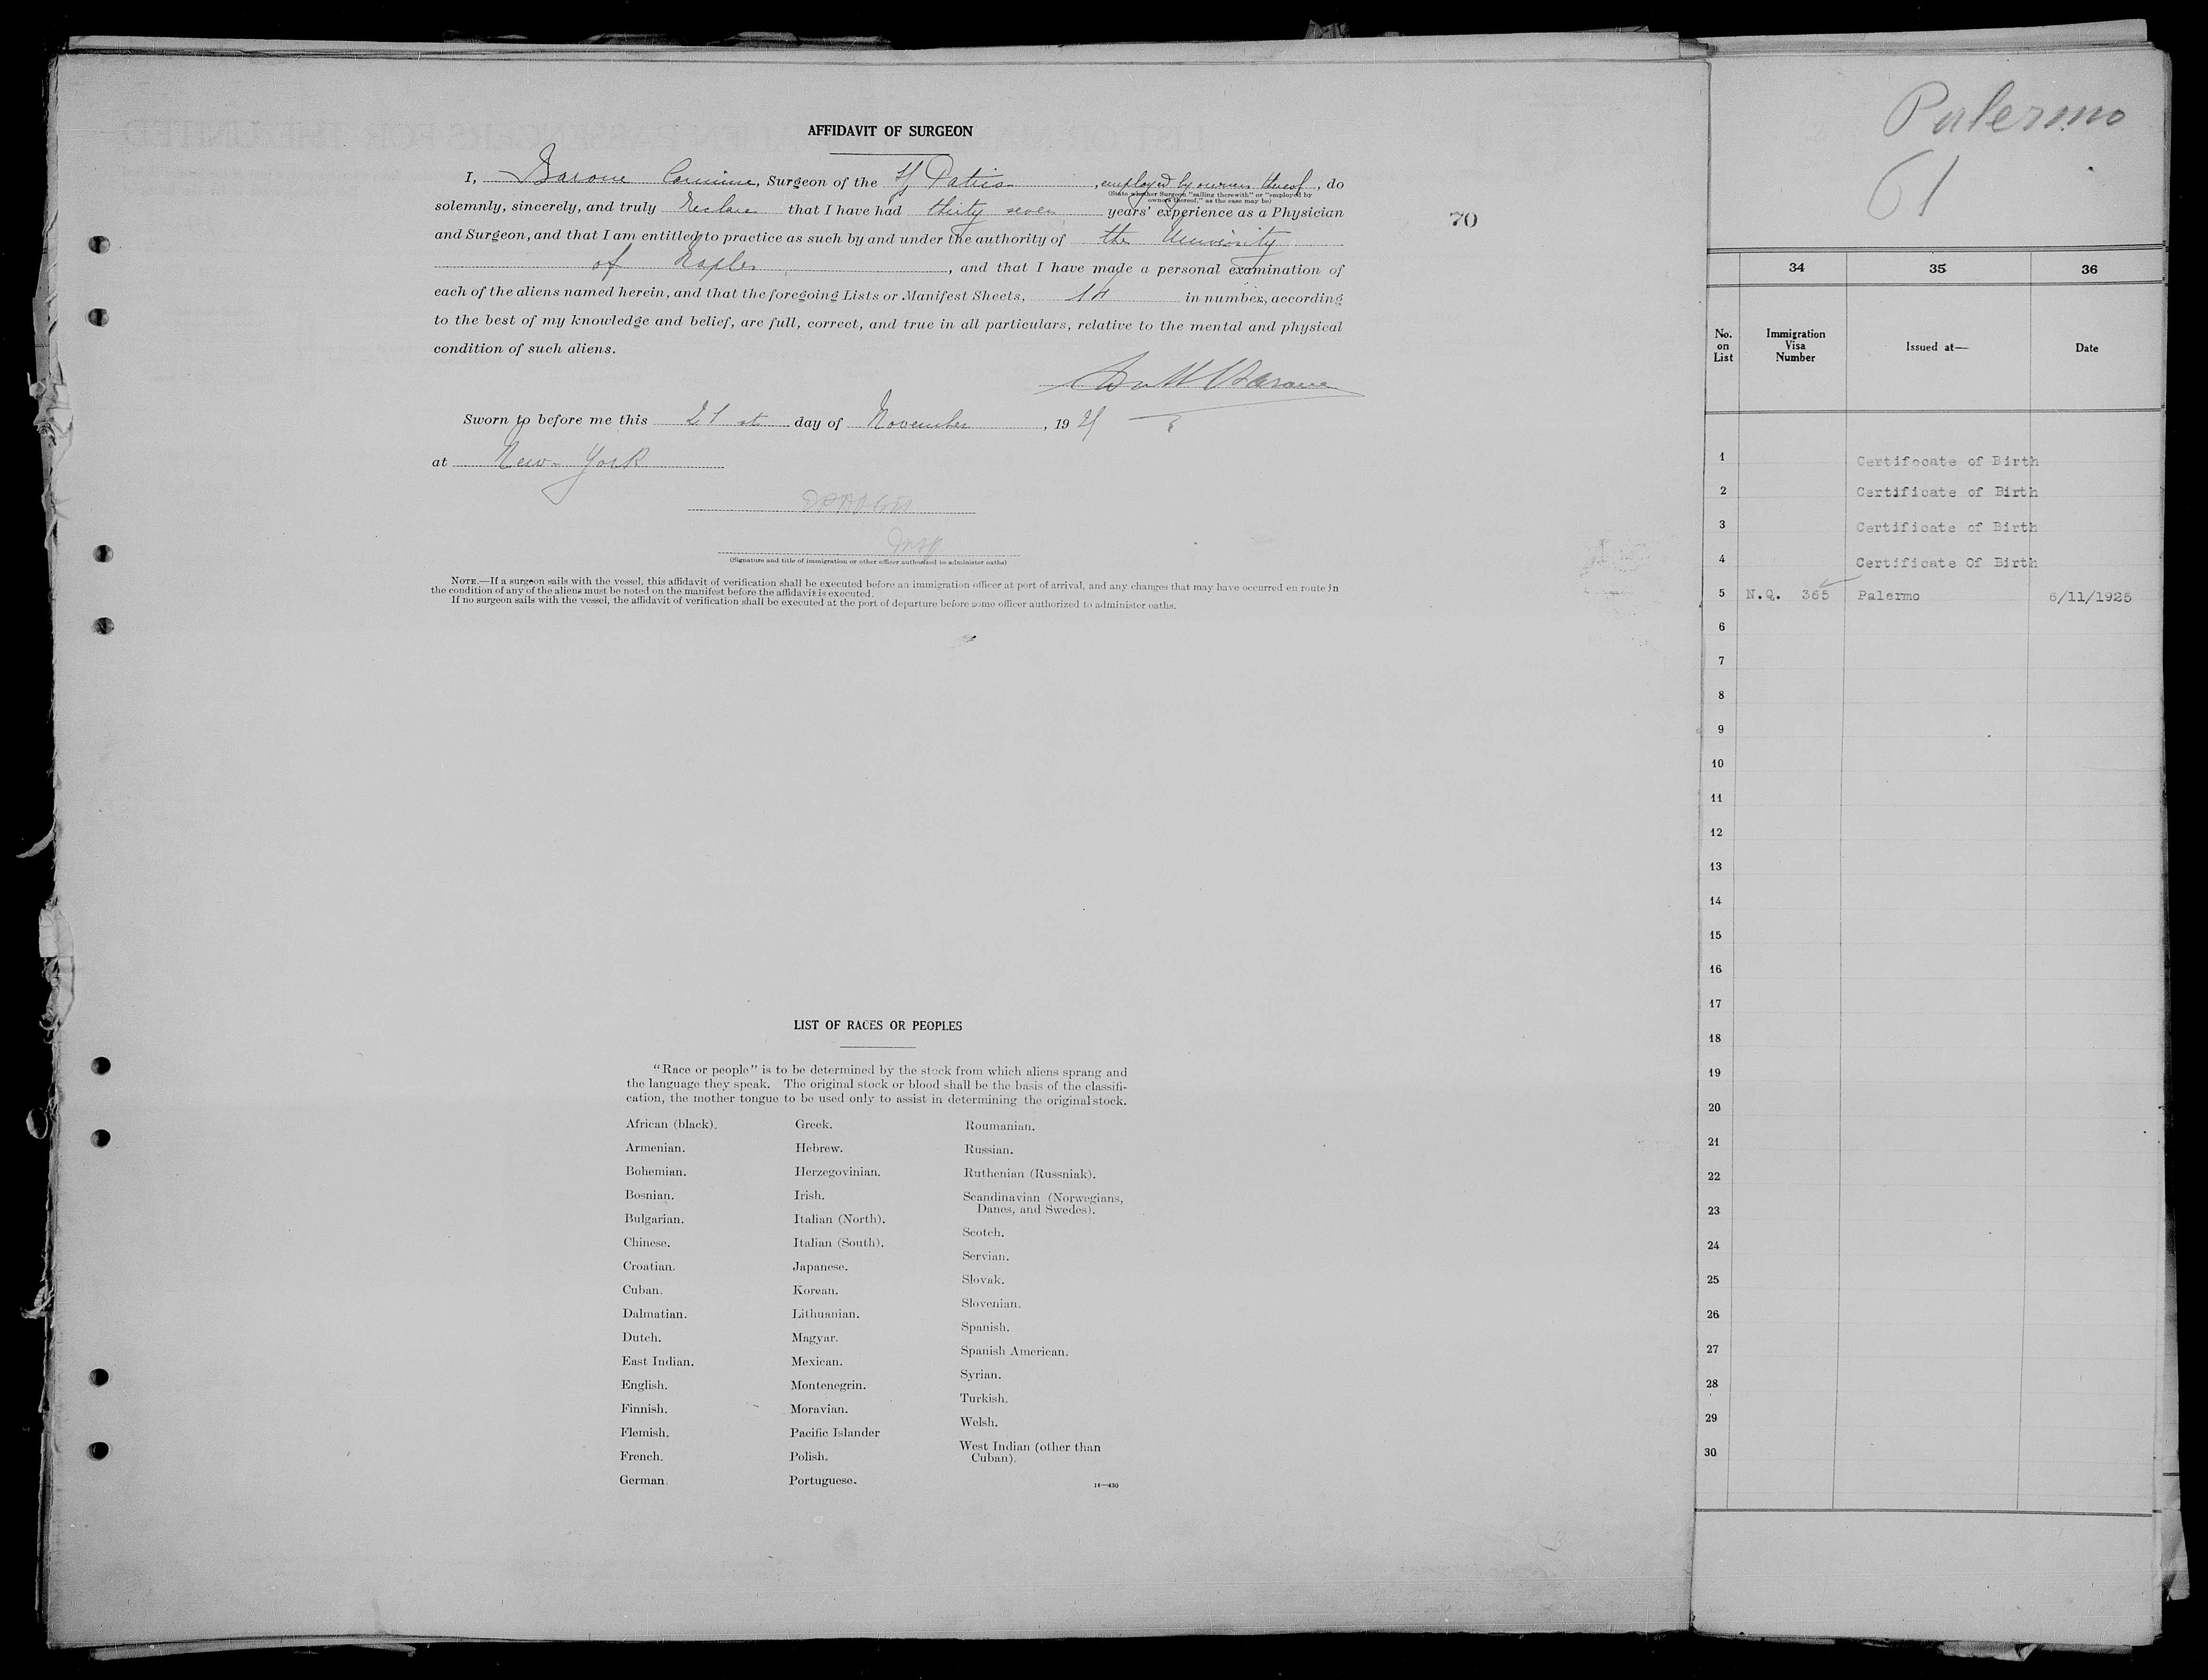 AFFIDAVIT OF SURGEON
I, Barone Carmine, Surgeon of the Patria, employed by owners thereof, do
(State whether Surgeon "sailing therewith" or "employed by
owners thereof," as the case may be)
solemnly, sincerely, and truly declare that I have had thirty seven years' experience as a Physician
and Surgeon, and that I am entitled to practice as such by and under the authority of the University
of Naples, and that I have made a personal examination of
each of the aliens named herein, and that the foregoing Lists or Manifest Sheets, 14 in number, according
to the best of my knowledge and belief, are full, correct, and true in all particulars, relative to the mental and physical
condition of such aliens.
Barone
Sworn to before me this 21 st day of November, 19
at New York
(Signature and title of immigration or other officer authorized to administer oaths)
NOTE.—If a surgeon sails with the vessel, this affidavit of verification shall be executed before an immigration officer at port of arrival, and any changes that may have occurred en route in
the condition of any of the aliens must be noted on the manifest before the affidavit is executed.
If no surgeon sails with the vessel, the affidavit of verification shall be executed at the port of departure before some officer authorized to administer oaths.
70
LIST OF RACES OR PEOPLES
"Race or people" is to be determined by the stock from which aliens sprang and
the language they speak. The original stock or blood shall be the basis of the classifi-
cation, the mother tongue to be used only to assist in determining the original stock.
African (black).
Armenian.
Bohemian.
Bosnian.
Bulgarian.
Chinese.
Croatian.
Cuban.
Dalmatian.
Dutch.
East Indian.
English.
Finnish.
Flemish.
French.
German.
Greek.
Hebrew.
Herzegovinian.
Irish.
Italian (North).
Italian (South).
Japanese.
Korean.
Lithuanian.
Magyar.
Mexican.
Montenegrin.
Moravian.
Pacific Islander
Polish.
Portuguese.
Roumanian.
Russian.
Ruthenian (Russniak).
Scandinavian (Norwegians,
Danes, and Swedes).
Scotch.
Servian.
Slovak.
Slovenian.
Spanish.
Spanish American.
Syrian.
Turkish.
Welsh.
West Indian (other than
Cuban).
14—430
Palermo
61
34 35 36
No. on List Immigration Visa Number Issued at— Date
1 Certifocate of Birth
2 Certificate of Birth
3 Certificate of Birth
4 Certificate Of Birth
5 N.Q. 365 Palermo 6/11/1925
6
7
8
9
10
11
12
13
14
15
16
17
18
19
20
21
22
23
24
25
26
27
28
29
30